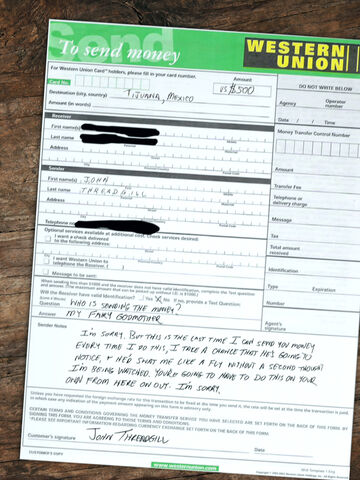 Send
To send money
WESTERN
UNION
For Western Union Card™ holders, please fill in your card number.
Card No.
Amount
US $500
Destination (city, country) TIJUANA, MEXICO
Amount (in words)
DO NOT WRITE BELOW
Agency
Operator number
Date / / Time
Money Transfer Control Number
Receiver
First name(s)
Last name
Address
Amount
Sender
First name(s) JOHN
Last name THREADGILL
Address
Transfer Fee
Telephone or delivery charge
Message
Telephone no
Tax
Optional services available at additional cost. Check services desired:
I want a check delivered to the following address:
Total amount received
I want Western Union to telephone the Receiver. ( )
Identification
Message to be sent:
Type
Expiration
Number
Will the Receiver have valid identification? Yes X No If no, provide a Test Question:
Question WHO IS SENDING THE MONEY?
Answer MY FAIRY GODMOTHER
Agent's signature
Sender Notes
I'M SORRY. BUT THIS IS THE LAST TIME I CAN SEND YOU MONEY
EVERY TIME I DO THIS, I TAKE A CHANCE THAT HE'S GOING TO
NOTICE, & HE'D SWAT ME LIKE A FLY WITHOUT A SECOND THOUGHT
I'M BEING WATCHED. YOU'RE GOING TO HAVE TO DO THIS ON YOUR
OWN FROM HERE ON OUT. I'M SORRY.
Unless you have requested the foreign exchange rate for this transaction to be fixed at the time you send it, the rate will be set at the time the transaction is paid,
in which case any indication of the payment amount appearing on this form is advisory only.
CERTAIN TERMS AND CONDITIONS GOVERNING THE MONEY TRANSFER SERVICE YOU HAVE SELECTED ARE SET FORTH ON THE BACK OF THIS FORM. BY
SIGNING THIS FORM YOU ARE AGREEING TO THOSE TERMS AND CONDITIONS.
*PLEASE SEE IMPORTANT INFORMATION REGARDING CURRENCY EXCHANGE SET FORTH ON THE BACK OF THIS FORM.
Customer's signature JOHN THREADGILL
Date
CUSTOMER'S COPY
www.westernunion.com